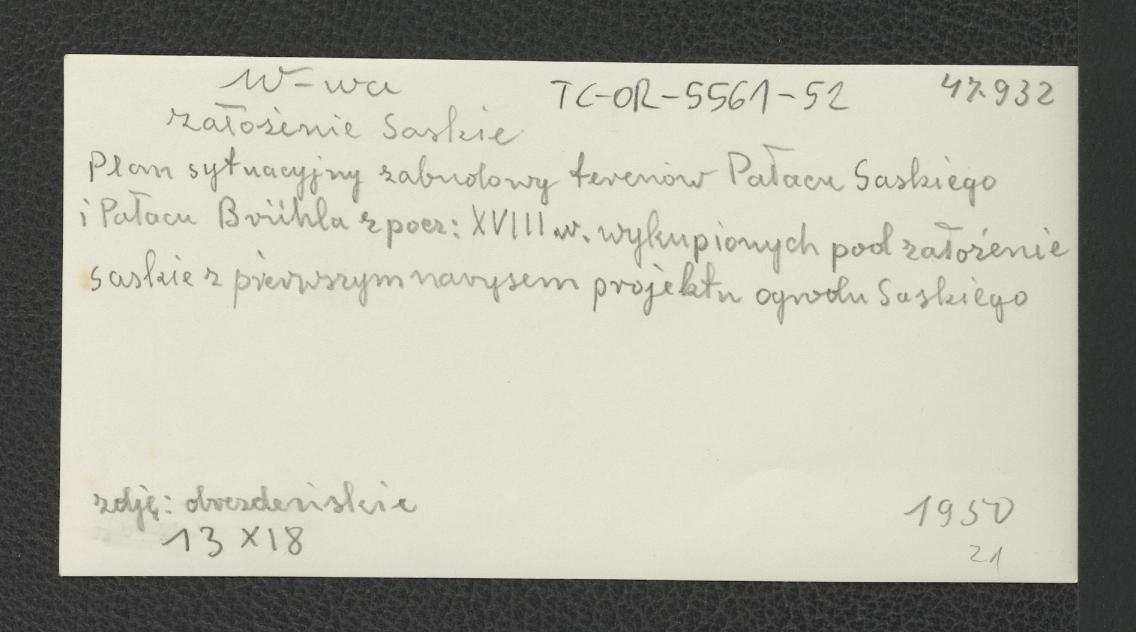 W-wa TC-OR-5561-52 47.932
założenie Saskie
Plan sytuacyjny zabudowy terenów Pałacu Saskiego
i Pałacu Brühla z pocz: XVIII w. wykupionych pod założenie
saskie z pierwszym narysem projektu ogrodu Saskiego
zdję: drezdeńskie
13 x 18
1950
21